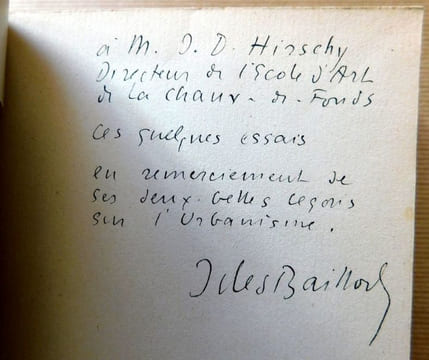 à M. J. D. Hirschy
Directeur de l'Ecole d'Art
de la Chaux-de-Fonds
ces quelques essais
en remerciement de
ses deux belles leçons
sur l'Urbanisme.
Jules Baillods